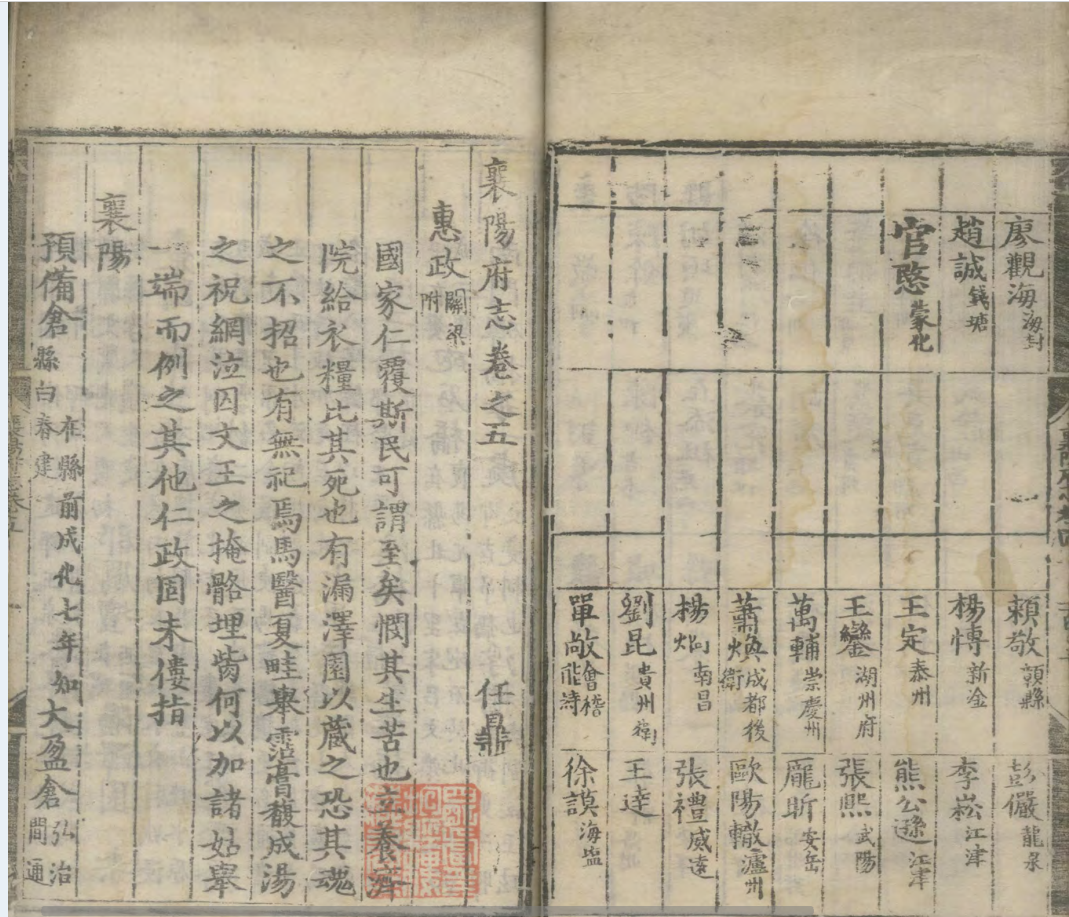 廖觀海 海封 賴敬 頴縣 彭儼 龍泉
趙誠 錢塘 楊愽 新淦 李崧 江津
官愍 蒙化 王定 泰州 熊公遜 江津
王鑾 湖州府 張熈 武陽
萬輔 崇慶州 龎昕 安岳
蕭煥 成都後衛 歐陽轍 瀘州
楊烱 南昌 張禮 威遠
劉昆 貴州衛 王達
單敞 會稽能詩 徐謨 海塩
襄陽府志卷之五 任鼎
惠政 關梁附
國家仁覆斯民可謂至矣憫其生苦也立養濟
院給衣糧比其死也有漏澤園以蔵之恐其魂
之不招也有無祀焉馬醫夏畦舉霑膏馥成湯
之祝網泣囚文王之掩骼埋胔何以加諸姑舉
一端而例之其他仁政固未僂指
襄陽
預備倉 在縣前成化七年知縣白春建 大盈倉 弘治間通